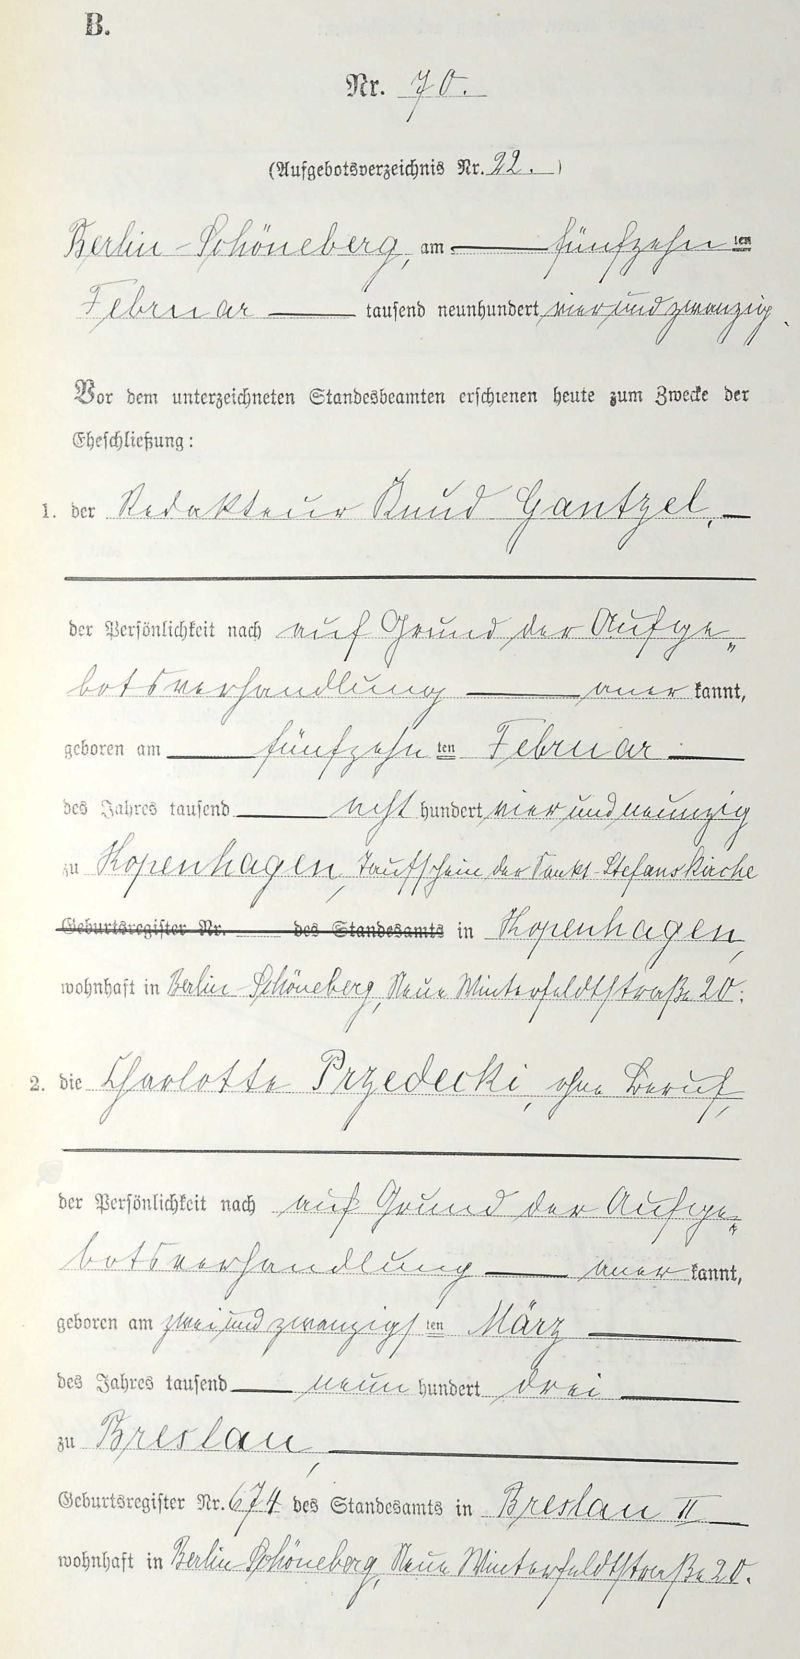 B.
Nr. 70.
(Aufgebotsverzeichnis Nr. 22. )
Berlin-Schöneberg, am fünfzehn ten
Februar tausend neunhundert vier und zwanzig.
Vor dem unterzeichneten Standesbeamten erschienen heute zum Zwecke der
Eheschließung:
1. der Redakteur Knud Gantzel,
der Persönlichkeit nach auf Grund der Aufge„
botsverhandlung aner kannt,
geboren am fünfzehn ten Februar
des Jahres tausend acht hundert vier und neunzig
zu Kopenhagen, Taufschein der Sankt-Stefanskirche
Geburtsregister Nr. des Standesamts in Kopenhagen,
wohnhaft in Berlin-Schöneberg, Neue Winterfeldtstraße 20:
2. die Charlotte Przedecki, ohne Beruf,
der Persönlichkeit nach auf Grund der Aufge„
botsverhandlung aner kannt,
geboren am zwei und zwanzigs ten März
des Jahres tausend neun hundert drei
zu Breslau,
Geburtsregister Nr. 674 des Standesamts in Breslau II
wohnhaft in Berlin-Schöneberg, Neue Winterfeldtstraße 20.